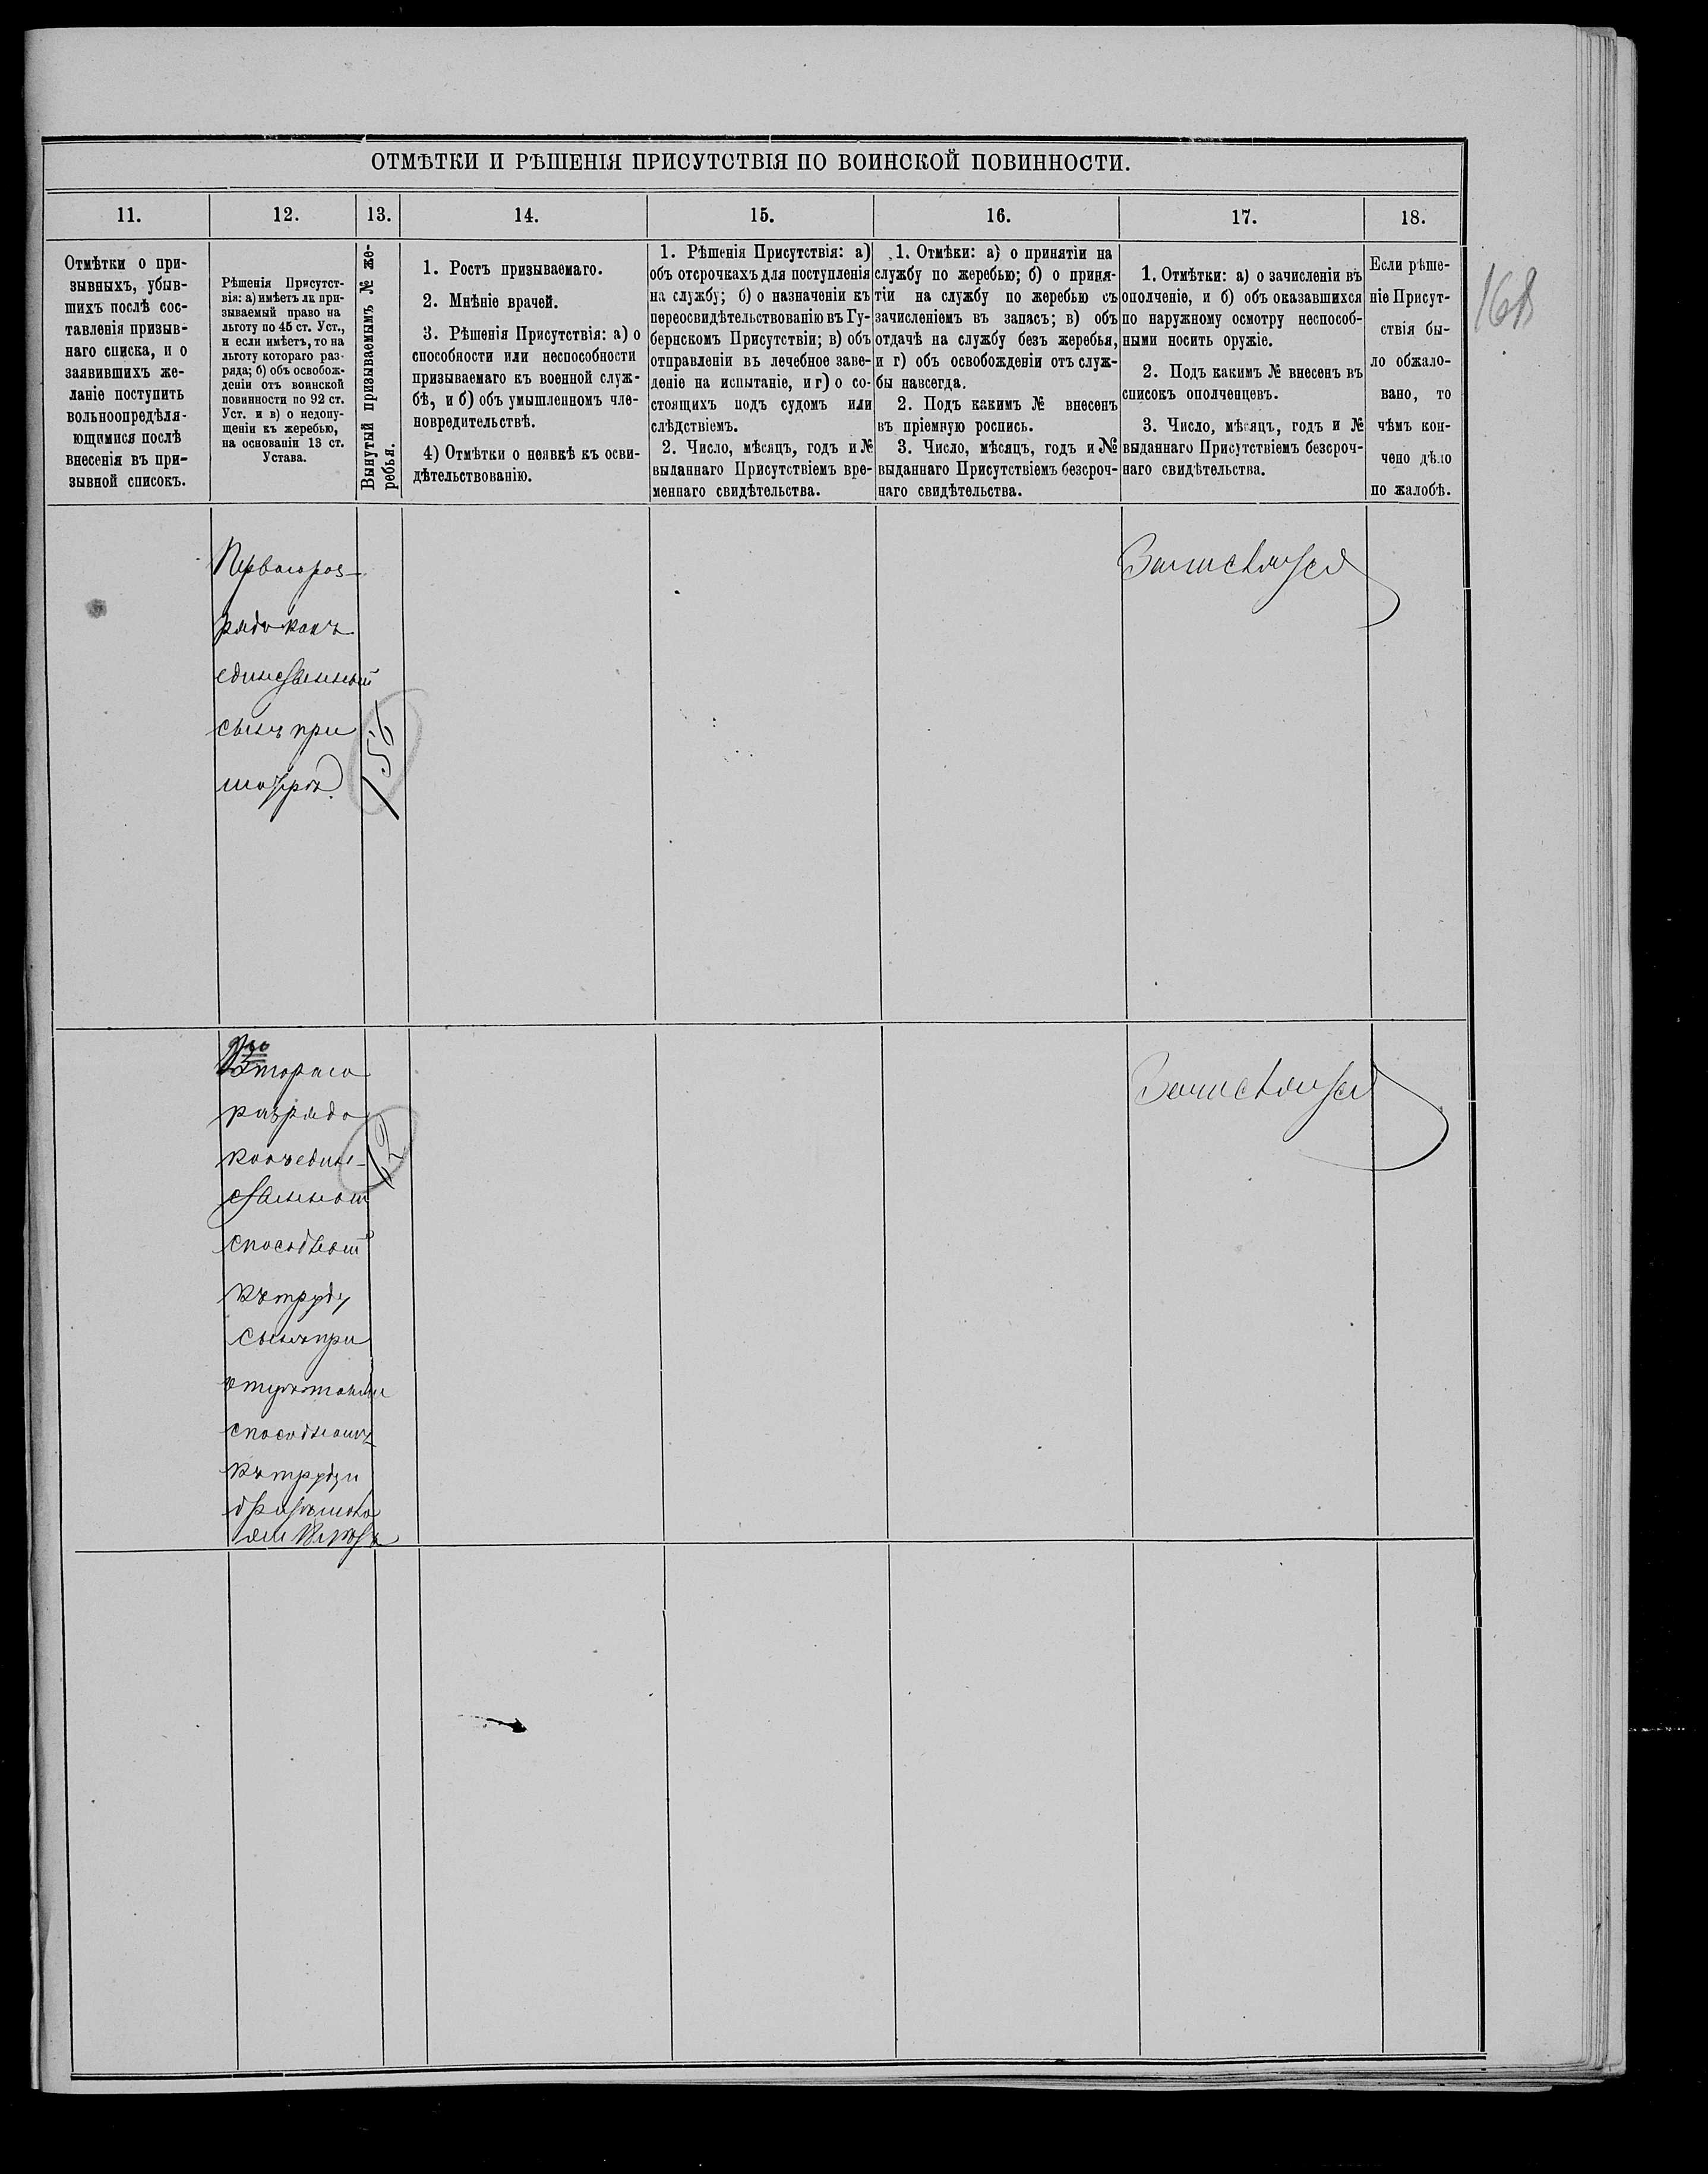 ОТМѢТКИ И РѢШЕНІЯ ПРИСУТСТВІЯ ПО ВОИНСКОЙ ПОВИННОСТИ.
11.
12.
13.
14.
15.
16.
17.
18.
Отмѣтки о при-
зывныхъ, убыв-
шихъ послѣ сос-
тавленія призыв-
наго списка, и о
заявившихъ же-
ланіе поступить
вольноопредѣля-
ющимися послѣ
внесенія въ при-
зывной списокъ.
Рѣшенія Присутст-
вія: а) имѣетъ ли при-
зываемый право на
льготу по 45 ст. Уст.,
и если имѣетъ, то на
льготу котораго раз-
ряда; б) объ освобож-
деніи отъ воинской
повинности по 92 ст.
Уст. и в) о недопу-
щеніи къ жеребью,
на основаніи 13 ст.
Устава.
Вынутый призываемымъ № же-
ребья.
1. Ростъ призываемаго.
2. Мнѣніе врачей.
3. Рѣшенія Присутствія: а) о
способности или неспособности
призываемаго къ военной служ-
бѣ, и б) объ умышленномъ чле-
новредительствѣ.
4) Отмѣтки о неявкѣ къ осви-
дѣтельствованію.
1. Рѣшенія Присутствія: а)
объ отсрочкахъ для поступленія
на службу; б) о назначеніи къ
переосвидѣтельствованію въ Гу-
бернскомъ Присутствіи; в) объ
отправленіи въ лечебное заве-
деніе на испытаніе, и г) о со-
стоящихъ подъ судомъ или
слѣдствіемъ.
2. Число, мѣсяцъ, годъ и №
выданнаго Присутствіемъ вре-
меннаго свидѣтельства.
1. Отмѣки: а) о принятіи на
службу по жеребью; б) о приня-
тіи на службу по жеребью съ
зачисленіемъ въ запасъ; в) объ
отдачѣ на службу безъ жеребья,
и г) объ освобожденіи отъ служ-
бы навсегда.
2. Подъ какимъ № внесенъ
въ пріемную роспись.
3. Число, мѣсяцъ, годъ и №
выданнаго Присутствіемъ безсроч-
наго свидѣтельства.
1. Отмѣтки: а) о зачисленіи въ
ополченіе, и б) объ оказавшихся
по наружному осмотру неспособ-
ными носить оружіе.
2. Подъ какимъ № внесенъ въ
списокъ ополченцевъ.
3. Число, мѣсяцъ, годъ и №
выданнаго Присутствіемъ безсроч-
наго свидѣтельства.
Если рѣше-
ніе Присут-
ствія бы-
ло обжало-
вано, то
чѣмъ кон-
чено дѣло
по жалобѣ.
168
Перваго раз-
ряда какъ
единственный
сынъ при
матери
156
Зачисляется
Втораго
разряда
какъ един-
ственный
способный
къ труду
сынъ при
отцѣ томже
способномъ
къ труду и
62
Зачисляется